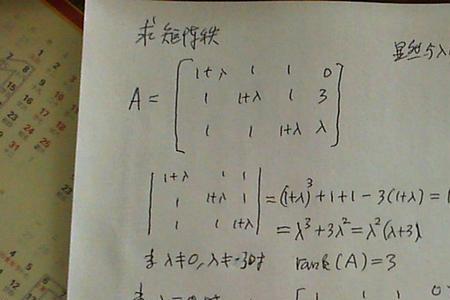 求矩阵秩
显然与λ
A = [ 1+λ 1 1 0
1 1+λ 1 3
1 1 1+λ λ ]
| 1+λ 1 1
1 1+λ 1
1 1 1+λ | = (1+λ)³ + 1 + 1 - 3(1+λ) =
= λ³ + 3λ² = λ²(λ+3)
λ≠0, λ≠-3时 rank(A) = 3